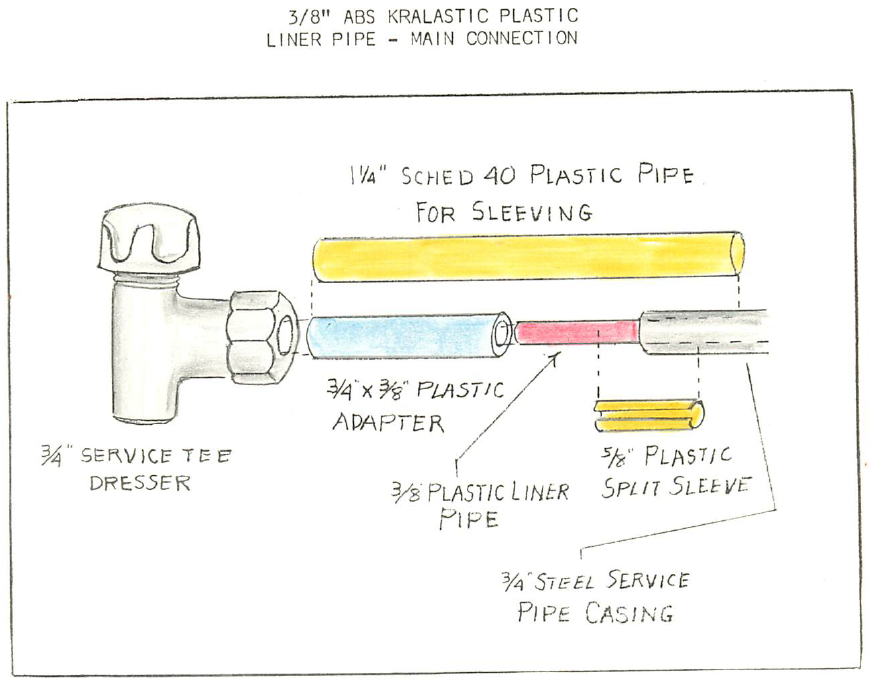 3/8" ABS KRALASTIC PLASTIC
LINER PIPE - MAIN CONNECTION
1¼" SCHED 40 PLASTIC PIPE
FOR SLEEVING
¾" x ⅜" PLASTIC
ADAPTER
¾" SERVICE TEE
DRESSER
⅜" PLASTIC LINER
PIPE
⅝" PLASTIC
SPLIT SLEEVE
¾" STEEL SERVICE
PIPE CASING